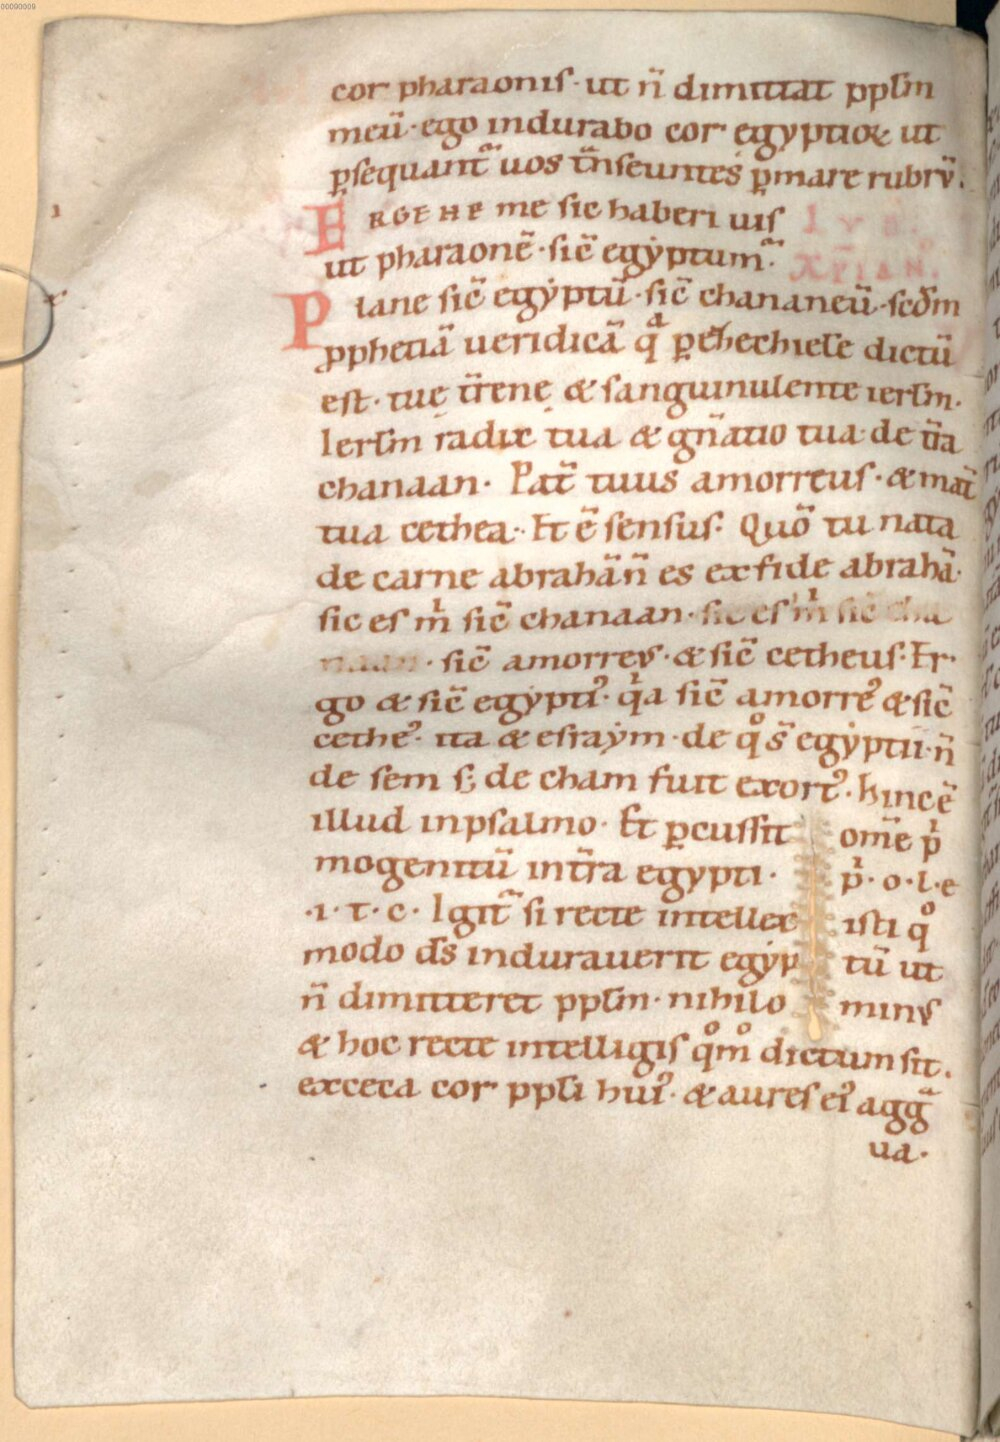 00090009
cor pharaonis· ut n̄ dimittat ppl̄m
meū· ego indurabo cor egyptioꝝ ut
ꝑsequant᷑ uos t̄nseuntes ꝑ mare rubrū.
ERGENE me sic haberi uis IVD.
ut pharaonē· sic̄ egẏptum᷑ XPIAN.
Plane sic̄ egẏptū· sic̄ chananeū· scđm
ꝓphetiā ueridicā qͣ ꝑ ehechiele dictū
est· tuę t̄renę & sanguinulente ierl̄m.
Ierl̄m radix tua & gn̄atio tua· de t̄ra
chanaan· Pat̄ tuus amorreus· & mat̄
tua cethea·· Et ē sensus· Quō tu nata
de carne abrahā n̄ es ex fide abrahā·
sic es mͥ sic̄ chanaan· sic es mͥ sic̄ cha
naan· sic̄ amorreus· & sic̄ cetheus· Er·
go & sic̄ egẏptꝰ· qͥa sic̄ amorreꝰ & sic̄
cetheꝰ· ita & efraẏm· de qͦ s̄ egẏptii· n̄
de sem s; de cham fuit exortꝰ· hinc ē
illud in psalmo· Et ꝑcussit om̄e pͥ
mogenitū in t̄ra egypti· pͥ· o· l· e
·i· t· c· Igit᷑ si recte intellex isti qͦ
modo d̄s indurauerit egẏp tū ut
n̄ dimitteret ppl̄m· nihilo minus
& hoc recte intelligis qͦmͦ dictum sit.
exceca cor ppl̄i huiꝰ· & aures eiꝰ aggͣ
ua·